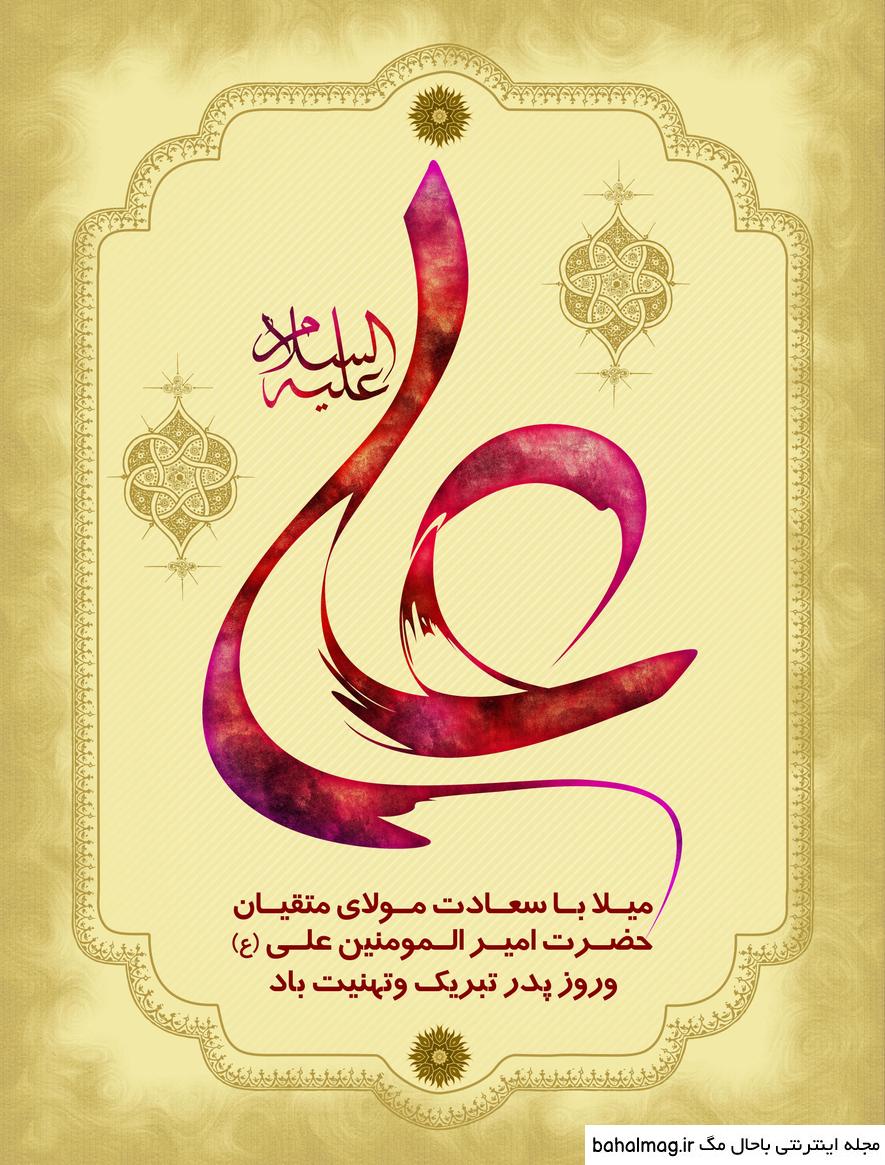 علی
علیه السلام
میـلا بـا سعـادت مـولای متقیـان
حضـرت امیـر الـمومنین علـی (ع)
وروز پدر تبریک وتهنیت باد
مجله اینترنتی باحال مگ bahalmag.ir